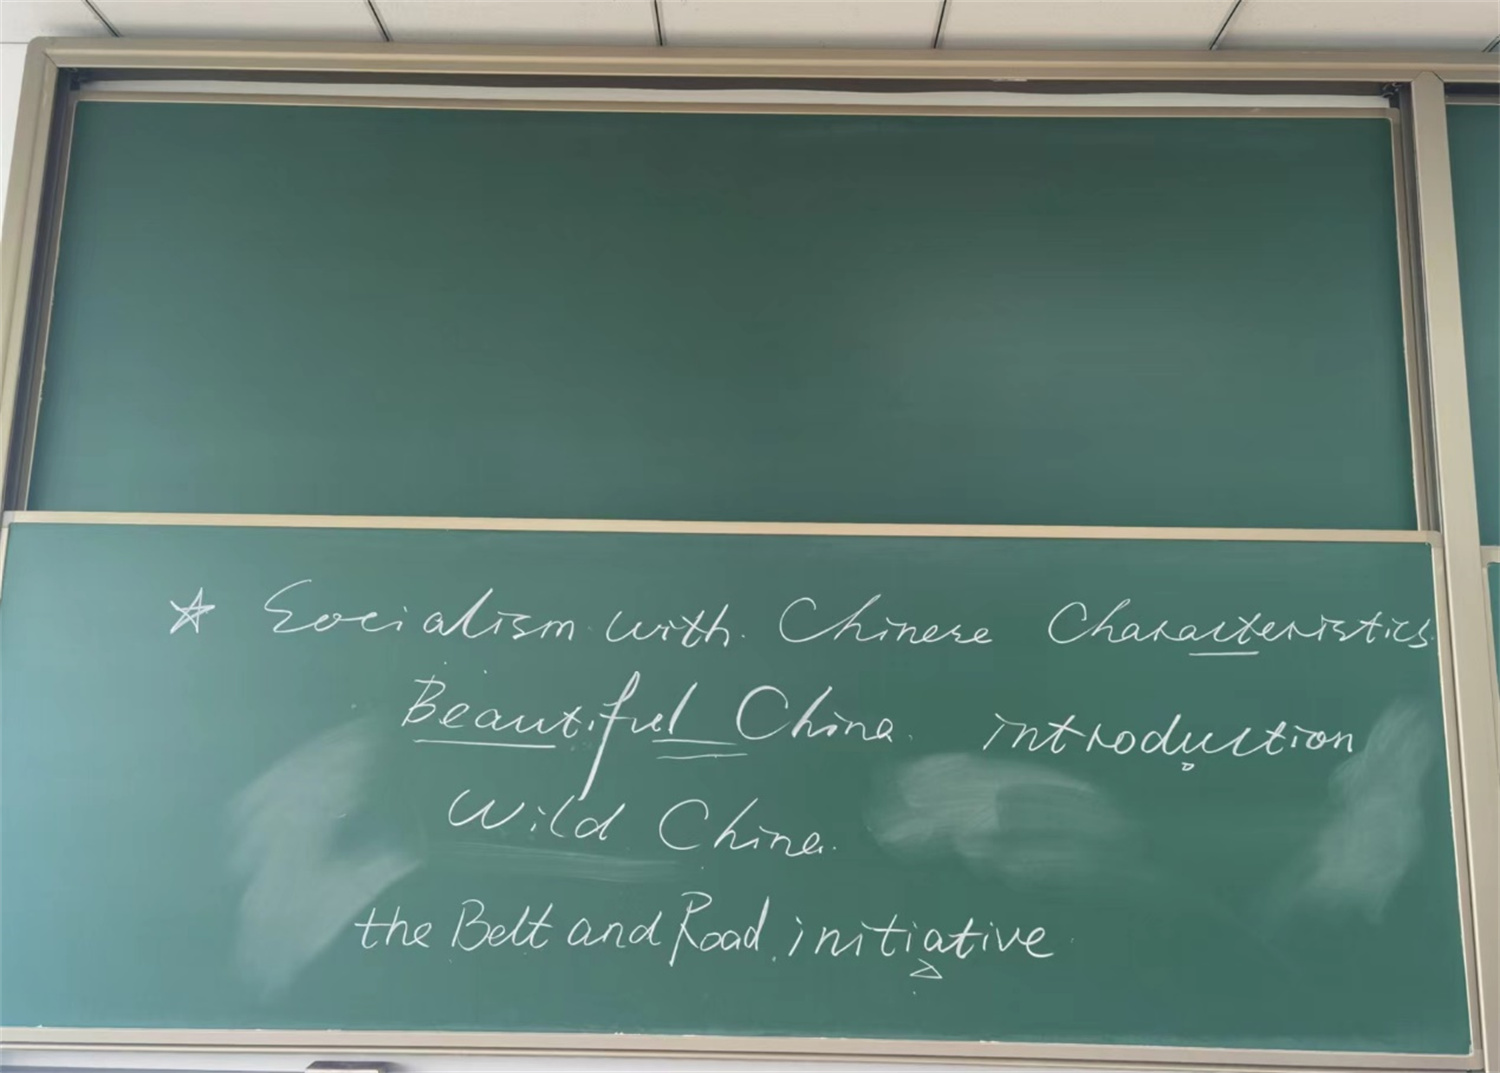 ☆ Socialism with Chinese Characteristics
Beautiful China introduction
Wild China
the Belt and Road initiative